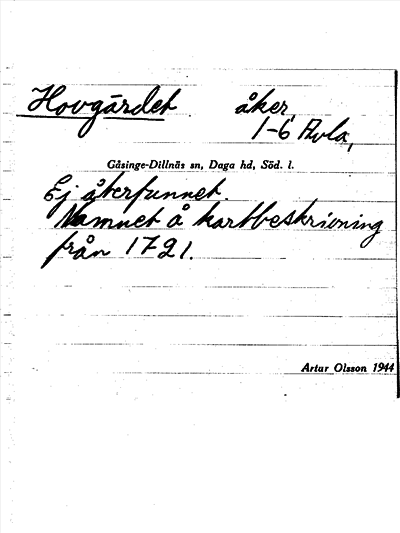 Hovgärdet åker,
1-6 Avla,
Gåsinge-Dillnäs sn, Daga hd, Söd. l.
Ej återfunnet.
Namnet å kartbeskrivning
från 1721.
Artur Olsson 1944